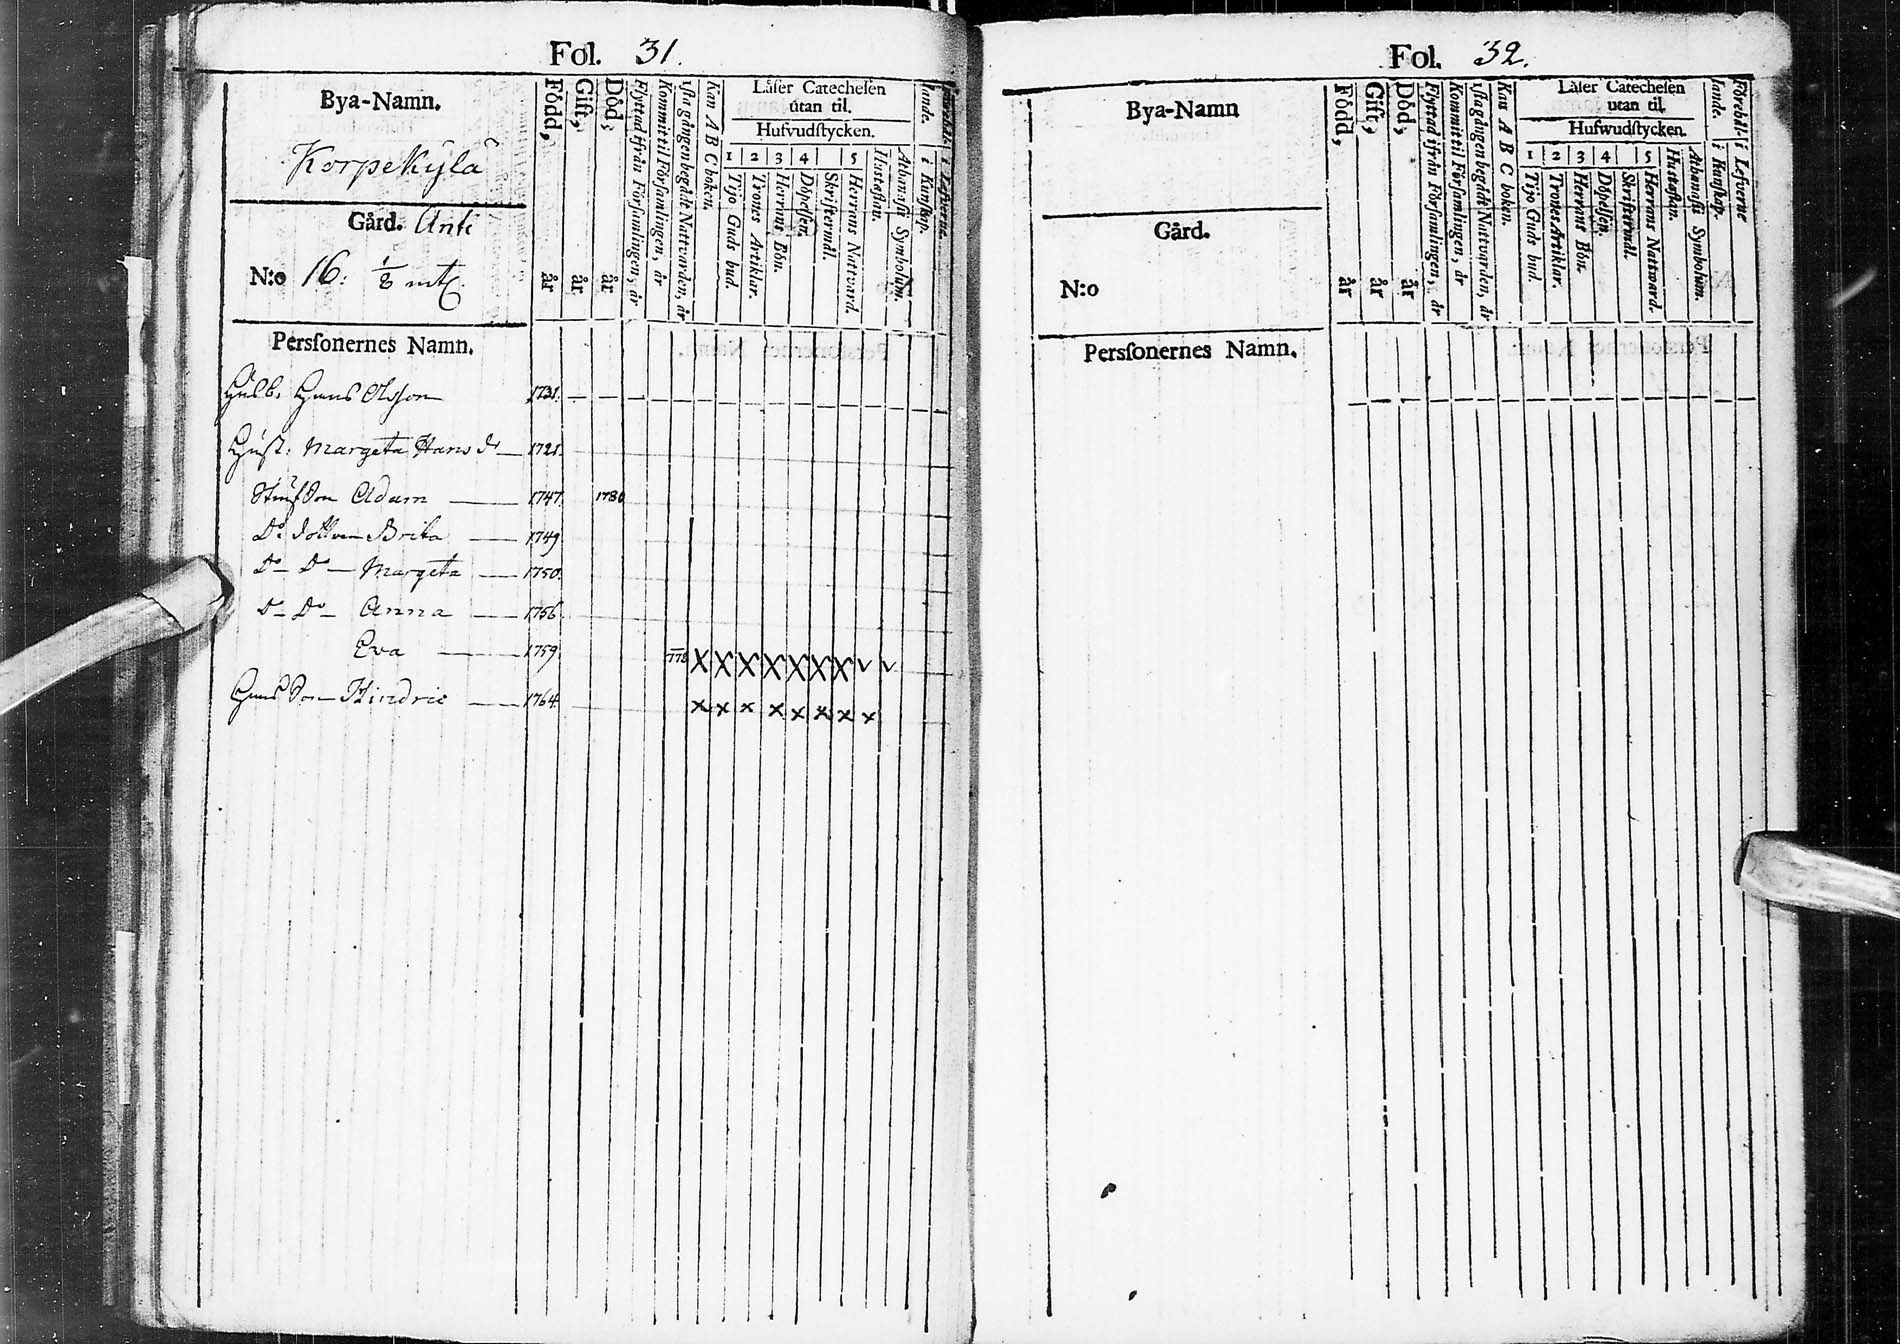 Fol. 31.
Bya-Namn.
Korpekylä
Gård. Anti
N:o 16. 1/8 mtl.
Född, år
Gift, år
Död, år
Flyttad ifrån Församlingen, år
Kommit til Församlingen, år
1sta gången begådt Nattvarden, år
Kan A B C boken.
Läser Catechesen
utan til.
Hufvudstycken.
1 2 3 4 5
Tijo Guds bud.
Trones Artiklar.
Herrans Bön.
Döpelsen.
Skriftermål.
Herrans Nattvard.
Hustaflan.
Athanasii Symbolum.
i Kunskap.
i Lefverne.
Personernes Namn.
Husb. Hans Olsson 1731.
Hust. Margeta Hans dr 1721.
Stiufson Adam 1747. 1780
Do dottren Brita 1749
Do Do Margeta 1750.
Do Do Anna 1756
Eva 1759. 1778 X X X X X X X v v
Hans Son Hindric 1764 x x x x x x x x
Fol. 32.
Bya-Namn
Gård.
N:o
Född, år
Gift, år
Död, år
Flyttad ifrån Församlingen, år
Kommit til Församlingen, år
1sta gången begådt Nattvarden, år
Kan A B C boken.
Läser Catechesen
utan til.
Hufwudstycken.
1 2 3 4 5
Tijo Guds bud.
Trones Artiklar.
Herrans Bön.
Döpelsen.
Skriftermål.
Herrans Nattvard.
Hustaflan.
Athanasii Symbolum.
i Kunskap.
i Lefverne
Personernes Namn.